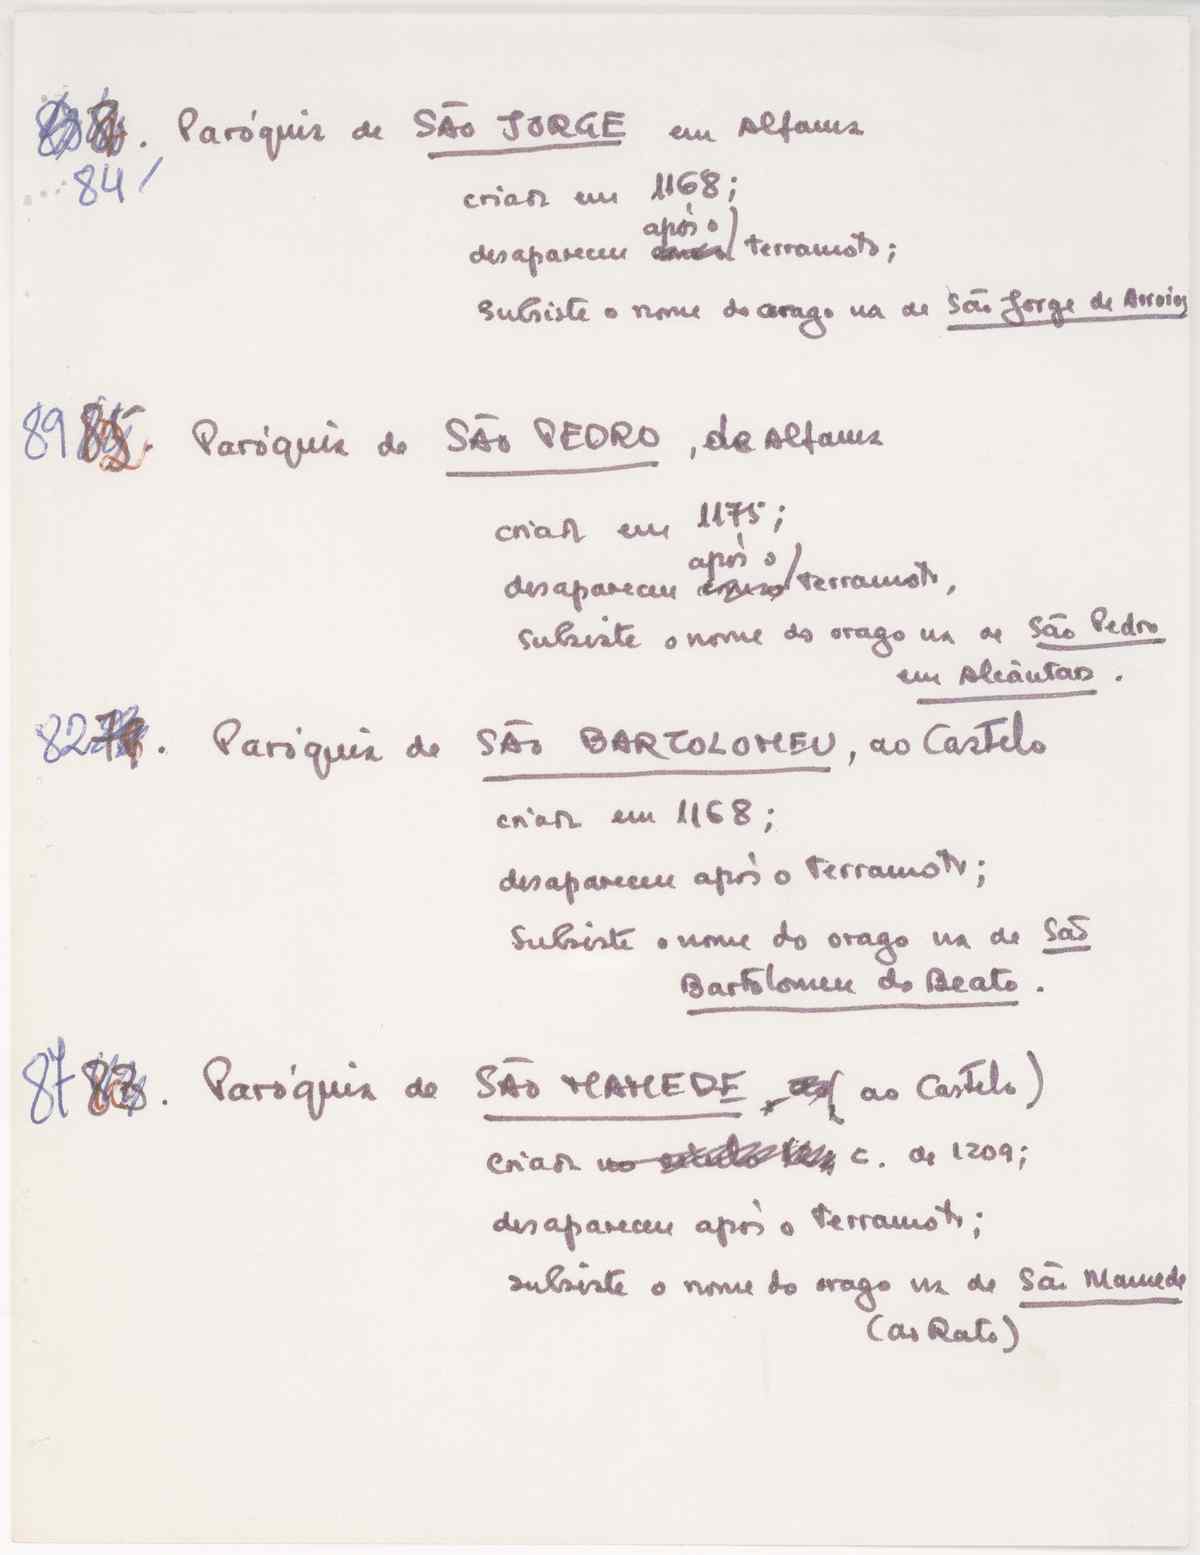 . Paróquia de SÃO JORGE em Alfama
84
criada em 1168;
após o
desapareceu terramoto;
Subsiste o nome do orago na de São Jorge de Arroios
89 . Paróquia de SÃO PEDRO, de Alfama
criada em 1175;
após o
desapareceu terramoto,
subsiste o nome do orago na de São Pedro
em Alcântara.
82 . Paróquia de SÃO BARTOLOMEU, ao Castelo
criada em 1168;
desapareceu após o terramoto;
Subsiste o nome do orago na de São
Bartolomeu do Beato.
87 . Paróquia de SÃO MAMEDE (ao Castelo)
criada c. de 1209;
desapareceu após o terramoto;
subsiste o nome do orago na de São Mamede
(ao Rato)